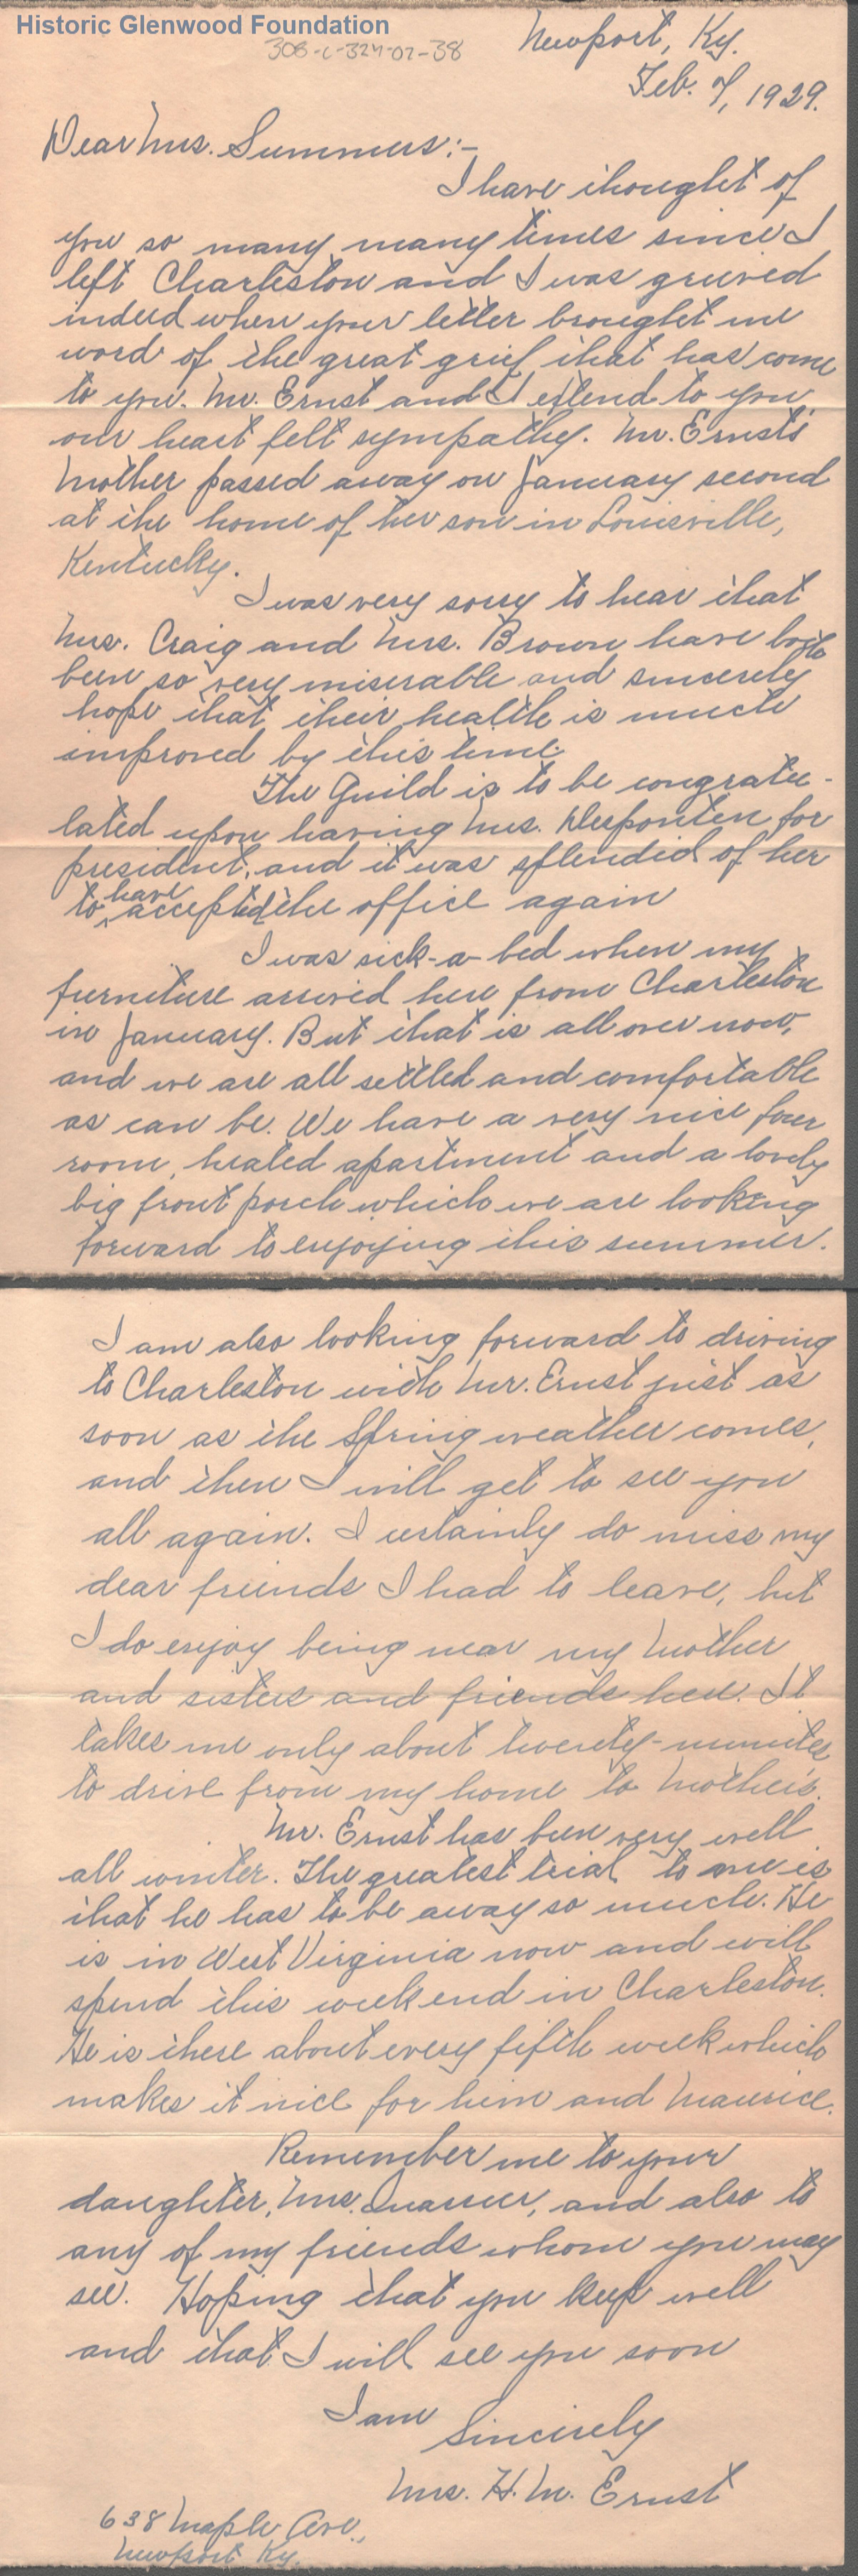 Historic Glenwood Foundation
308-c-324-02-38
Newport, Ky.
Feb. 7, 1929.
Dear Mrs. Summers:-
I have thought of
you so many many times since I
left Charleston and I was grieved
indeed when your letter brought me
word of the great grief that has come
to you. Mr. Ernst and I extend to you
our heart felt sympathy. Mr. Ernst's
Mother passed away on January second
at the home of her son in Louisville,
Kentucky.
I was very sorry to hear that
Mrs. Craig and Mrs. Brown have both
been so very miserable and sincerely
hope that their health is much
improved by this time.
The Guild is to be congratu-
lated upon having Mrs. for
president, and it was splendid of her
to have accepted the office again
I was sick-a-bed when my
furniture arrived here from Charleston
in January. But that is all over now,
and we are all settled and comfortable
as can be. We have a very nice four
room, heated apartment and a lovely
big front porch which we are looking
forward to enjoying this summer.
I am also looking forward to driving
to Charleston with Mr. Ernst just as
soon as the Spring weather comes,
and then I will get to see you
all again. I certainly do miss my
dear friends I had to leave, but
I do enjoy being near my Mother
and sisters and friends here. It
takes me only about twenty-minutes
to drive from my home to Mother's.
Mr. Ernst has been very well
all winter. The greatest trial to me is
that he has to be away so much. He
is in West Virginia now and will
spend this weekend in Charleston.
He is there about every fifth week which
makes it nice for him and Maurice.
Remember me to your
daughter, Mrs. and also to
any of my friends whom you may
see. Hoping that you keep well
and that I will see you soon
I am
Sincerely
Mrs. H. M. Ernst
638 Maple Ave.,
Newport Ky.